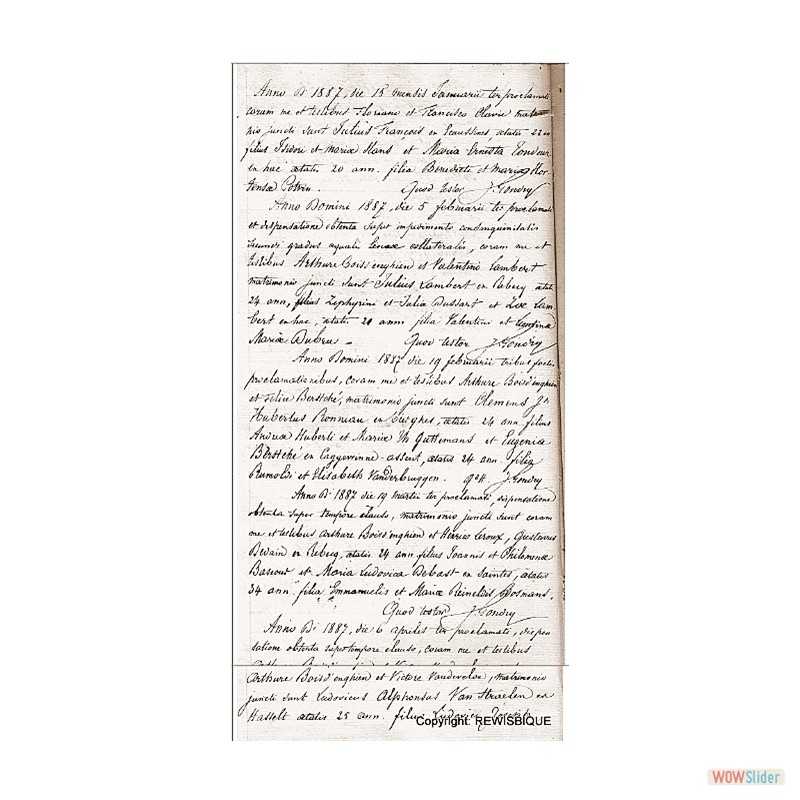 Anno Di 1887, die 15 mensis Januarii ter proclamati
coram me et testibus Floriano et Francisco Clavie matri-
nio juncti sunt Julius François, en Ecaussines, ætatis 22
filius Isidori et mariæ Hans et Maria Ernesta Tondeur
en hac ætatis 20 ann. filia Benedicti et mariæ Hor-
tensæ Potvin. Quod testor J. Gondry
Anno Domini 1887, die 5 februarii ter proclamati
et dispensatione obtenta super impedimento consanguinitatis
secundi gradus æqualis lineæ collateralis, coram me et
testibus Arthure Boisd'enghien et Valentino Lambert
matrimonio juncti sunt Julius Lambert en Rebecq ætatis
24 ann, filius Zephyrini et Julia Dussart et Zoe Lam-
bert en hac, ætatis 21 ann filia Valentini et
Mariæ Dubru - Quod testor J. Gondry
Anno Domini 1887 die 19 februarii tribus factis
proclamationibus, coram me et testibus Arthure Boisd'enghien
et Felice Berstché, matrimonio juncti sunt Clemens Jh
Hubertus Bonneau en ætatis 24 ann. filius
Andreæ Huberti et Mariæ Th Guttemans et Eugenia
Berstché en ætatis 24 ann. filia
Rumoldi et Elisabeth Vanderbruggen. J. Gondry
Anno Di 1887 die 19 martii ter proclamati, dispensatione
obtenta super tempore clauso, matrimonio juncti sunt coram
me et testibus Arthure Boisd'enghien et Henrico Leroux, Gustavus
Bedain en Rebecq, ætatis 24 ann filius Joannis et Philomenæ
Bascour et Maria Ludovica Debast en Saintes, ætatis
34 ann filia Emmanuelis et Mariæ Reineldis Posmans.
Quod testor J. Gondry
Anno Di 1887, die 6 aprilis ter proclamati, dispen-
satione obtenta super tempore clauso, coram me et testibus
Arthure Boisd'enghien et Victore Vandervelde, matrimonio
juncti sunt Ludovicus Alphonsus Van Straelen en
Hasselt ætatis 25 ann. filius Ludovici
Copyright: REWISBIQUE
WOWSlider